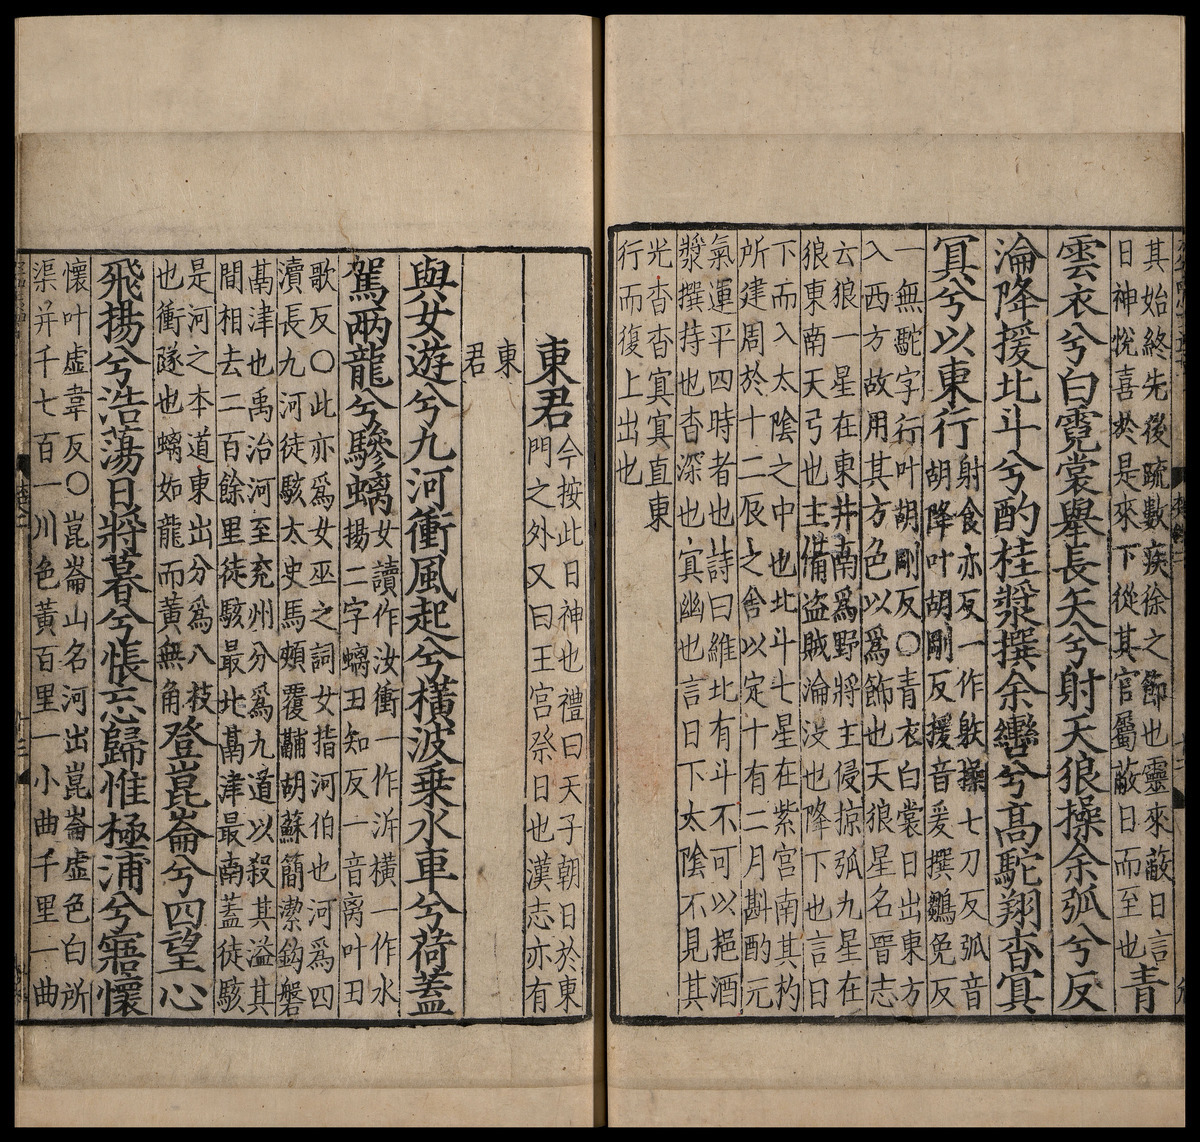 其始終先後疏數疾徐之節也靈來蔽日言
日神悅喜於是來下從其官屬蔽日而至也
青
雲衣兮白霓裳舉長矢兮射天狼操余弧兮反
淪降援北斗兮酌桂漿撰余轡兮高駝翔杳冥
冥兮以東行
射食亦反一作䠶操七刀反弧音
胡降叶胡剛反援音爰撰鶵免反
一無駝字行叶胡剛反〇青衣白裳日出東方
入西方故用其方色以爲飾也天狼星名晉志
云狼一星在東井南爲野將主侵掠弧九星在
狼東南天弓也主備盗賊淪没也降下也言日
下而入太陰之中也北斗七星在紫宮南其杓
所建周於十二辰之舍以定十有二月斟酌元
氣運平四時者也詩曰維北有斗不可以挹酒
漿撰持也杳深也冥幽也言日下太陰不見其
光杳杳冥冥直東
行而復上出也
東君
今按此日神也禮曰天子朝日於東
門之外又曰王宮祭日也漢志亦有
東
君
與女遊兮九河衝風起兮橫波乗水車兮荷蓋
駕兩龍兮驂螭
女讀作汝衝一作泝橫一作水
揚二字螭丑知反一音离叶丑
歌反〇此亦爲女巫之詞女指河伯也河爲四
瀆長九河徒駭太史馬頰覆鬴胡蘇簡潔鈎磐
鬲津也禹治河至兗州分爲九道以殺其溢其
間相去二百餘里徒駭最北鬲津最南蓋徒駭
是河之本道東出分爲八枝
也衝隧也螭如龍而黃無角
登崑崙兮四望心
飛揚兮浩蕩日將暮兮悵忘歸惟極浦兮寤懷
懷叶虛韋反〇崑崙山名河出崑崙虛色白所
渠并千七百一川色黃百里一小曲千里一曲